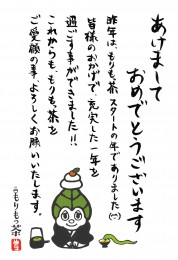 あけまして
おめでとうございます
昨年は、もりもっ茶スタートの年でありました(^^)
皆様のおかげで、充実した一年を
過ごす事ができました!!
これからも、もりもっ茶を
ご愛顧の事、よろしくお願いいたします。
もりもっ茶